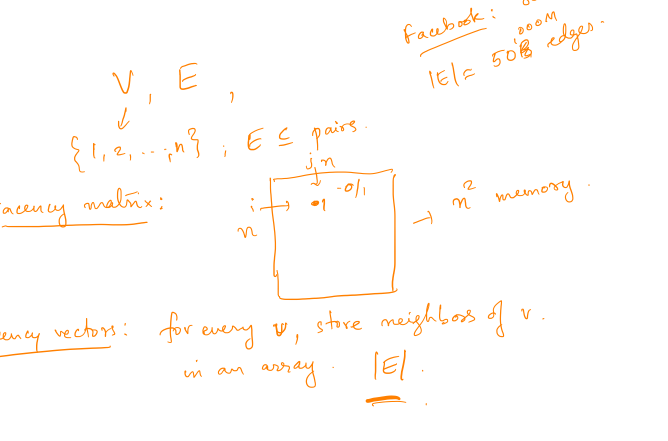 Facebook:
000M
|E| = 50B edges.
V, E,
{1, 2, ..., n}, E ⊆ pairs.
j, n
acency matrix: i → •1 -0/1 → n² memory.
n
ency vectors: for every v, store neighbors of v.
in an array. |E|.